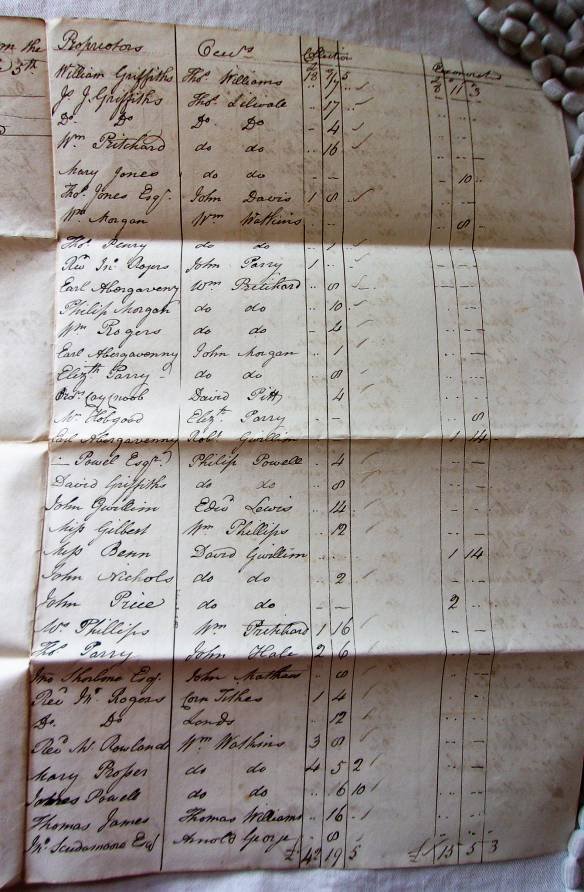 om the
5th
Proprietors Occurs Collection Exonerated
William Griffiths Thos Williams 18 7 5 8 11 3
Js J. Griffiths Thos .. 17 ..
Do Do Do Do - 4 ..
Wm Pritchard do do .. 16
Mary Jones do do - - - 10 ..
Thos Jones Esqr John Davis 1 8 ..
Wm Morgan Wm Watkins - - .. 8 ..
Thos Penry do do - 1
Revd Jno Rogers John Parry 1 ..
Earl Abergavenny Wm Pritchard .. 8
Philip Morgan do do .. 10
Wm Rogers do do - 4
Earl Abergavenny John Morgan .. 1
Elizth Parry do do .. 8
David Pitt 4
Mr Hobgood Elizth Parry .. - 8
Earl Abergavenny Robt Gwillim .. 1 14
- Powel Esqr Philip Powell .. 4
David Griffiths do do .. 8
John Gwillim Edwd Lewis .. 14
Miss Gilbert Wm Phillips .. 12
Miss Benn David Gwillim .. .. 1 14
John Nichols do do 2
John Price do do - - 2
Mrs Phillips Wm Pritchard 1 16
Thos Parry John Hale 2 6
Jno Esqr John Mathews .. 8
Revd Jno Rogers Corn Tithes 1 4
Do Do Lands .. 12
Revd Mr Rowlands Wm Watkins 3 8
Mary Prosser do do 4 5 2
James Powell do do .. 6 10
Thomas James Thomas Williams .. 16 ..
Jno Scudamore Esqr Arnold George - 8
£ 42 19 5 £ 15 5 3